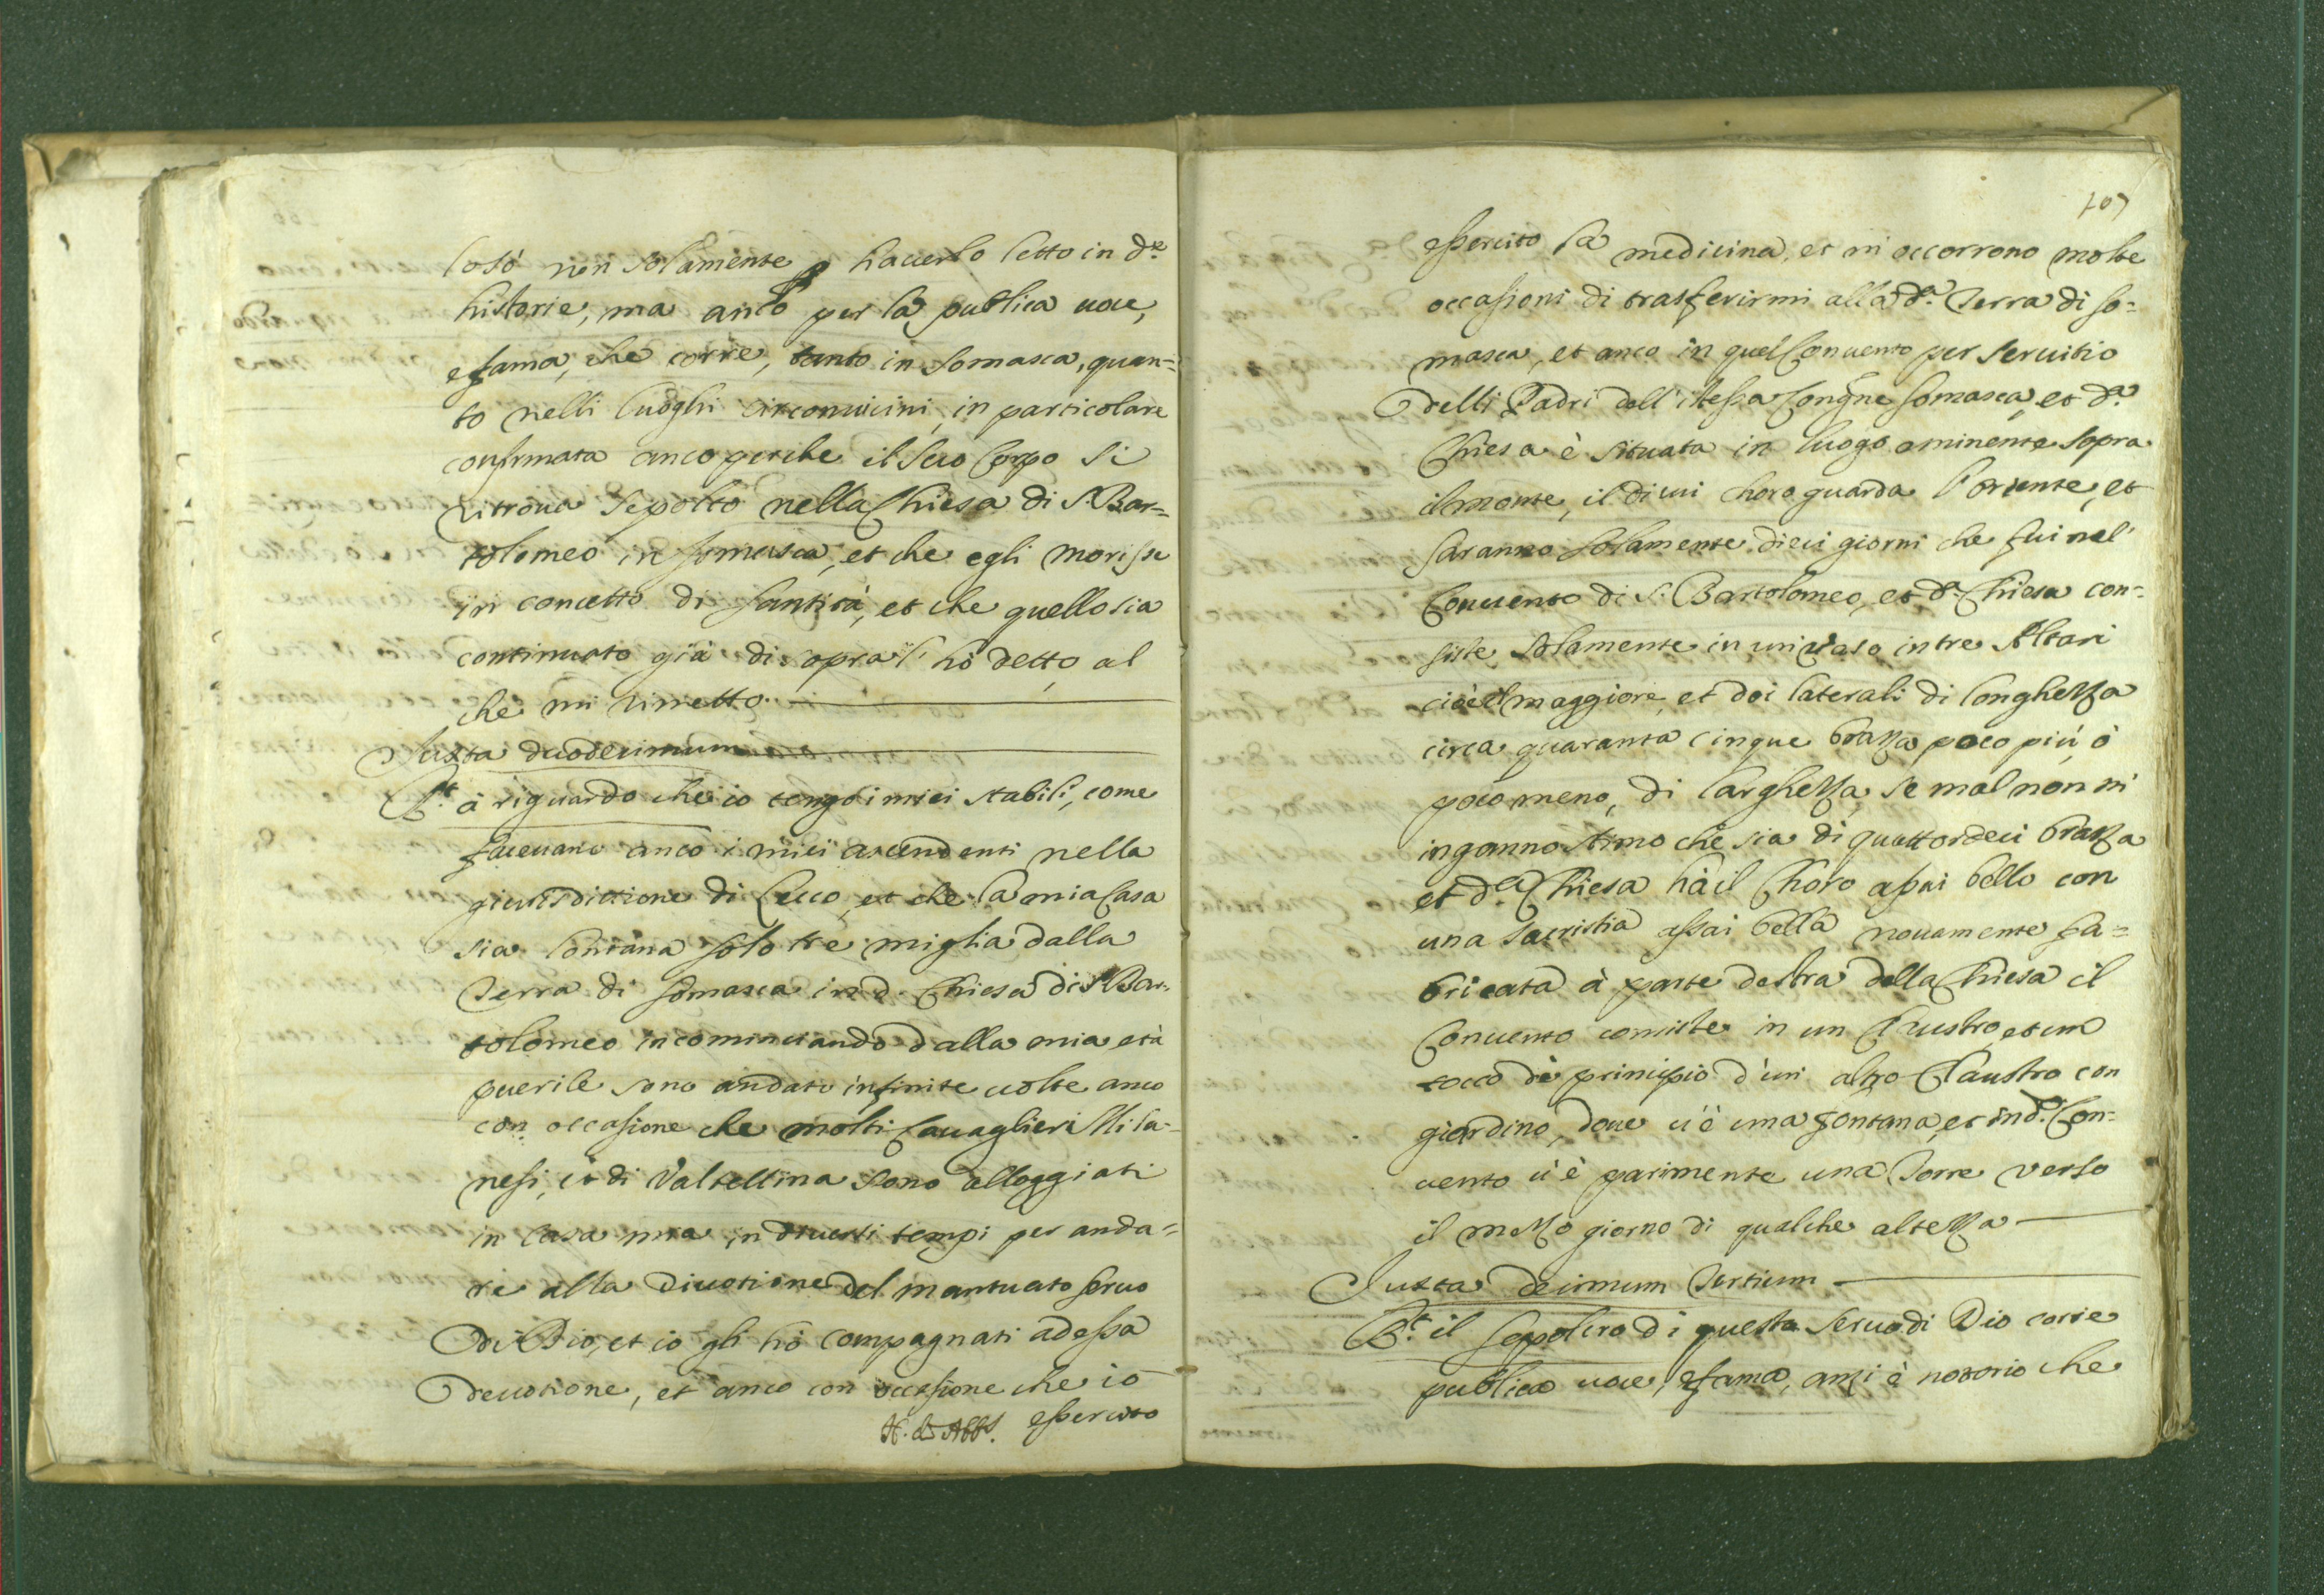 lo sò non solamente p hauerlo letto in d.e
historie, ma anco per la publica uoce,
e fama, che corre, tanto in Somasca, quan=
to nelli luoghi circonuicini, in particolare
confirmata anco perche il suo Corpo si
ritroua sepolto nella Chiesa di S. Bar=
tolomeo in Somasca, et che egli morisse
in concetto di Santità, et che quello sia
continuato già di sopra l'hò detto, al
che mi rimetto.
Iuxta duodecimum
R.t à riguardo che io tengo i miei stabili, come
faceuano anco i miei ascendenti nella
giurisdittione di Lecco, et che la mia Casa
sia lontana solo tre miglia dalla
Terra di Somasca in d. Chiesa di S. Bar=
tolomeo incominciando dalla mia età
puerile sono andato infinite uolte anco
con occasione che molti Cauaglieri Mila=
nesi, et di Valtellina sono alloggiati
in Casa mia in diuersi tempi per anda=
re alla diuotione del mentuato Seruo
di Dio, et io gli hò compagnati ad essa
deuotione, et anco con occasione che io
essercito
107
essercito la medicina, et mi occorrono molte
occasioni di trasferirmi alla d.a Terra di So=
masca, et anco in quel Conuento per seruitio
delli Padri dell'istessa Congne Somasca, et d.a
Chiesa è situata in luogo eminente sopra
il monte, il di cui choro guarda l'oriente, et
saranno solamente dieci giorni che fui nel
Conuento di S. Bartolomeo, et d.a Chiesa con=
siste solamente in un uaso in tre Altari
cioè il maggiore, et doi laterali di longhezza
circa quaranta cinque brazza poco più, ò
poco meno, di larghezza, se mal non mi
inganno stimo che sia di quattordeci brazza
et d.a Chiesa hà il Choro assai bello con
una Sacristia assai bella nouamente fa=
bricata à parte destra della Chiesa il
Conuento consiste in un Claustro, et un
tocco di principio d'un altro Claustro con
giardino, doue u'è una fontana, et in d.o Con=
uento u'è parimente una Torre verso
il mezzo giorno di qualche altezza
Iuxta decimum tertium
R.t il sepolcro di questo Seruo di Dio corre
publica uoce, e fama, anzi è notorio che